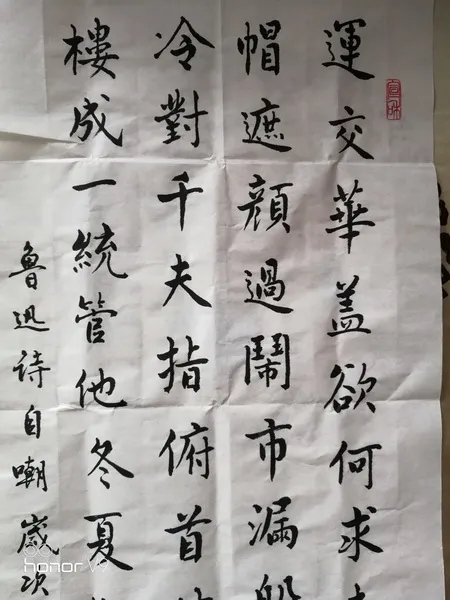 運交華盖欲何求
帽遮顏過鬧市漏船
冷對千夫指俯首
樓成一統管他冬夏
魯迅诗自嘲歲次
honor V9